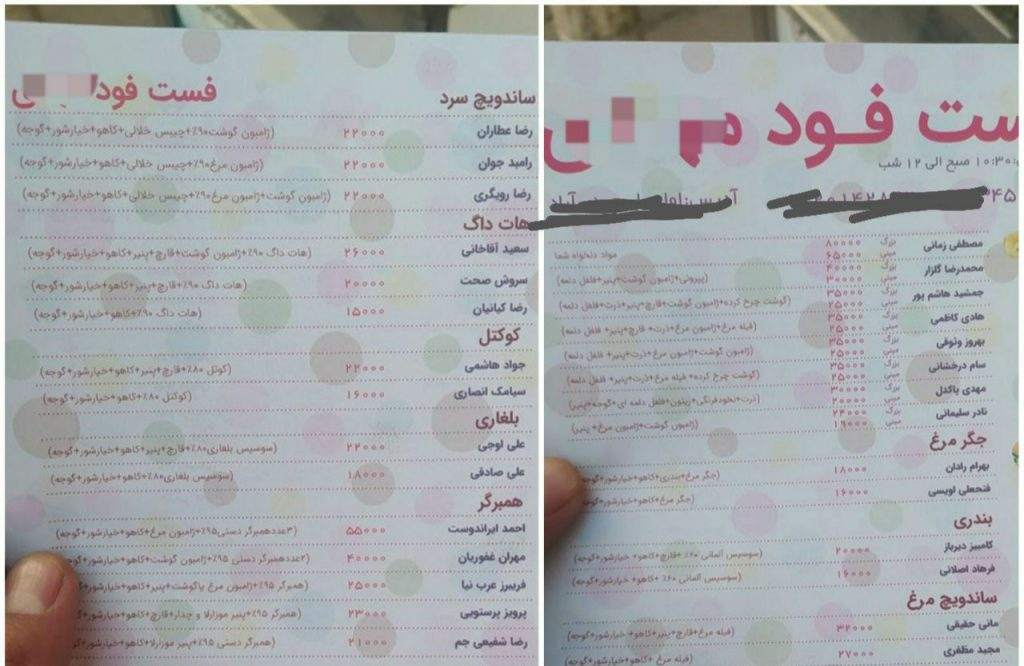 فست فود
ساندویچ سرد
رضا عطاران ۲۲۰۰۰ (ژامبون گوشت۹۰٪+چیپس خلالی+کاهو+خیارشور+گوجه)
رامبد جوان ۲۲۰۰۰ (ژامبون مرغ۹۰٪+چیپس خلالی+کاهو+خیارشور+گوجه)
رضا رویگری ۲۲۰۰۰ (ژامبون گوشت+ژامبون مرغ۹۰٪+چیپس خلالی+کاهو+خیارشور+گوجه)
هات داگ
سعید آقاخانی ۲۶۰۰۰ (هات داگ ۹۰٪+ژامبون گوشت+قارچ+پنیر+کاهو+خیارشور+گوجه)
سروش صحت ۲۰۰۰۰ (هات داگ ۹۰٪+قارچ+پنیر+کاهو+خیارشور+گوجه)
رضا کیانیان ۱۵۰۰۰ (هات داگ ۹۰٪+کاهو+خیارشور+گوجه)
کوکتل
جواد هاشمی ۲۲۰۰۰ (کوتل ۸۰٪+قارچ+پنیر+کاهو+خیارشور+گوجه)
سیامک انصاری ۱۶۰۰۰ (کوکتل ۸۰٪+کاهو+خیارشور+گوجه)
بلغاری
علی اوجی ۲۲۰۰۰ (سوسیس بلغاری۸۰٪+قارچ+پنیر+کاهو+خیارشور+گوجه)
علی صادقی ۱۸۰۰۰ (سوسیس بلغاری۸۰٪+کاهو+خیارشور+گوجه)
همبرگر
احمد ایراندوست ۵۵۰۰۰ (۳عددهمبرگر دستی۹۵٪+ژامبون مرغ+کاهو+خیارشور+گوجه)
مهران غفوریان ۴۰۰۰۰ (۲عددهمبرگر دستی ۹۵٪+ژامبون گوشت+کاهو+خیارشور+گوجه)
فریبرز عرب نیا ۲۵۰۰۰ (همبرگر ۹۵٪+ژامبون مرغ یاگوشت+پنیر+کاهو+خیارشور+گوجه)
پرویز پرستویی ۲۳۰۰۰ (همبرگر ۹۵٪+پنیر موزارلا و چدار+قارچ+کاهو+خیارشور+گوجه)
رضا شفیعی جم ۲۱۰۰۰ (همبرگر دستی ۹۵٪+پنیر موزارلا+کاهو+خیارشور+گوجه)
ست فود
۱۰:۳۰ صبح الی ۱۲ شب
۳۴۵ ۰۱۴۲۸ آدرس: آباد
مصطفی زمانی بزرگ ۸۰۰۰۰ مینی ۶۵۰۰۰ مواد دلخواه شما
محمدرضا گلزار بزرگ ۴۰۰۰۰ مینی ۳۰۰۰۰ (پپرونی+ژامبون گوشت+پنیر+فلفل دلمه)
جمشید هاشم پور بزرگ ۳۵۰۰۰ مینی ۲۵۰۰۰ (گوشت چرخ کرده+ژامبون گوشت+قارچ+پنیر+ذرت+فلفل دلمه)
هادی کاظمی بزرگ ۳۵۰۰۰ مینی ۲۵۰۰۰ (فیله مرغ+ژامبون مرغ+ذرت+قارچ+پنیر+ فلفل دلمه)
بهروز وثوقی بزرگ ۳۵۰۰۰ مینی ۲۵۰۰۰ (ژامبون گوشت+ژامبون مرغ+ذرت+پنیر+ فلفل دلمه)
سام درخشانی بزرگ ۳۵۰۰۰ مینی ۲۵۰۰۰ (گوشت چرخ کرده+ فیله مرغ+ذرت+پنیر+ فلفل دلمه)
مهدی پاکدل بزرگ ۳۰۰۰۰ مینی ۲۰۰۰۰ (ذرت+نخودفرنگی+زیتون+فلفل دلمه ای+گوجه+پنیر)
نادر سلیمانی بزرگ ۲۴۰۰۰ مینی ۱۹۰۰۰ (ژامبون گوشت+ژامبون مرغ+ پنیر)
جگر مرغ
بهرام رادان ۱۸۰۰۰ (جگر مرغ+بندری+کاهو+خیارشور+گوجه)
فتحعلی اویسی ۱۶۰۰۰ (جگر مرغ+کاهو+خیارشور+گوجه)
بندری
کامبیز دیرباز ۲۰۰۰۰ (سوسیس آلمانی ۶۰٪+قارچ+کاهو+خیارشور+گوجه)
فرهاد اصلانی ۱۶۰۰۰ (سوسیس آلمانی ۶۰٪+کاهو+خیارشور+گوجه)
ساندویچ مرغ
مانی حقیقی ۳۲۰۰۰ (فیله مرغ+قارچ+پنیر+کاهو+خیارشور+گوجه)
مجید مظفری ۲۷۰۰۰ (فیله مرغ +کاهو+خیارشور+گوجه)